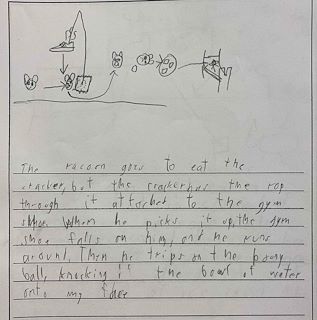 The racoon goes to eat the
cracker, but the cracker has the rop
through it attached to the gym
shoe. When he picks it up, the gym
shoe falls on him, and he runs
around. Then he trips on the
ball, knocking the bowl of water
onto my face